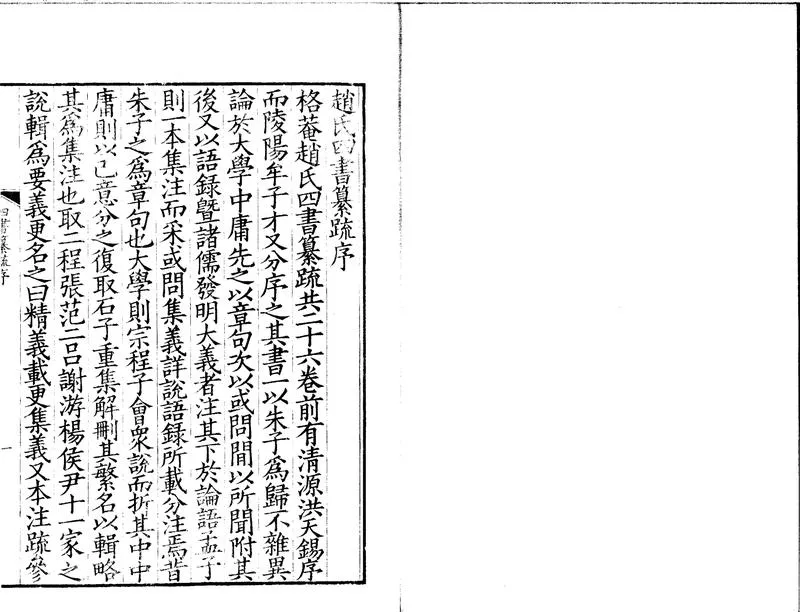 趙氏四書纂疏序
格菴趙氏四書纂疏共二十六卷前有清源洪天錫序
而陵陽牟子才又分序之其書一以朱子爲歸不雜異
論於大學中庸先之以章句次以或問間以所聞附其
後又以語録曁諸儒發明大義者注其下於論語孟子
則一本集注而采或問集義詳說語録所載分注焉昔
朱子之爲章句也大學則宗程子會衆說而折其中中
庸則以己意分之復取石子重集解刪其繁名以輯略
其爲集注也取二程張范二吕謝游楊侯尹十一家之
說輯爲要義更名之曰精義載更集義又本注疏參
四書纂疏序
一